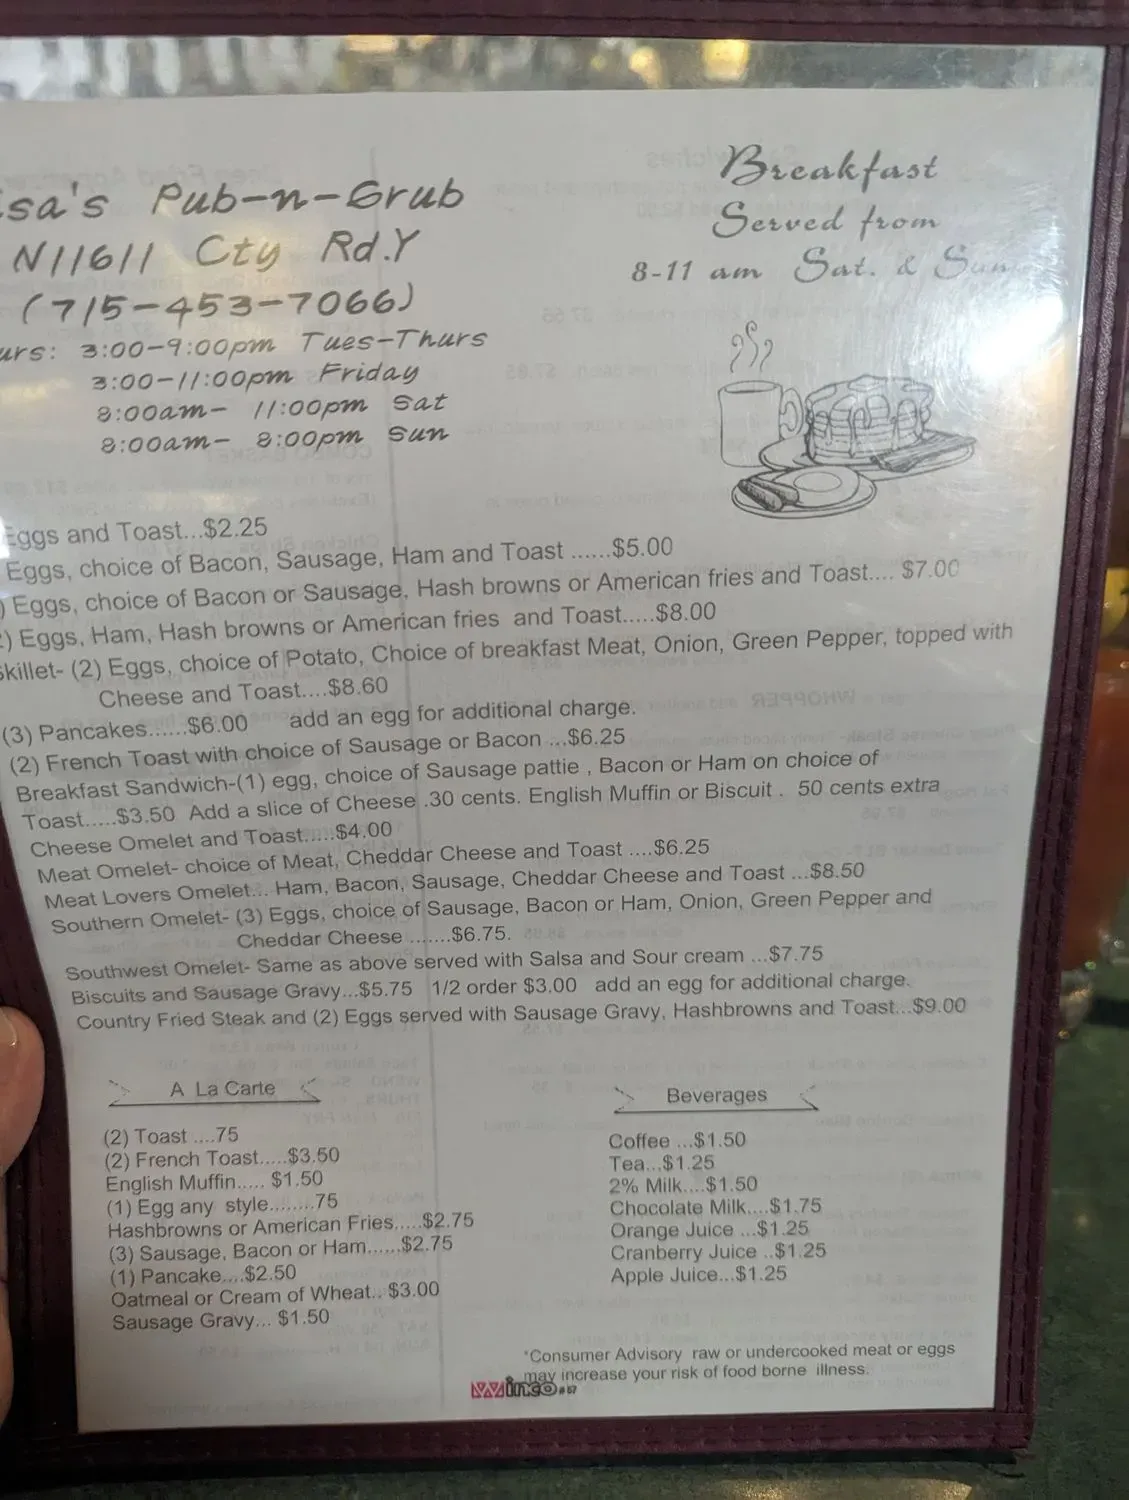 Pub-n-Grub
N11611 Cty Rd.Y
(715-453-7066)
3:00-9:00pm Tues-Thurs
3:00-11:00pm Friday
8:00am- 11:00pm Sat
8:00am- 8:00pm Sun
Breakfast
Served from
8-11 am Sat. & Sun
Eggs and Toast...$2.25
Eggs, choice of Bacon, Sausage, Ham and Toast ......$5.00
) Eggs, choice of Bacon or Sausage, Hash browns or American fries and Toast.... $7.00
2) Eggs, Ham, Hash browns or American fries and Toast.....$8.00
Skillet- (2) Eggs, choice of Potato, Choice of breakfast Meat, Onion, Green Pepper, topped with
Cheese and Toast....$8.60
(3) Pancakes......$6.00 add an egg for additional charge.
(2) French Toast with choice of Sausage or Bacon ...$6.25
Breakfast Sandwich-(1) egg, choice of Sausage pattie , Bacon or Ham on choice of
Toast.....$3.50 Add a slice of Cheese .30 cents. English Muffin or Biscuit . 50 cents extra
Cheese Omelet and Toast.....$4.00
Meat Omelet- choice of Meat, Cheddar Cheese and Toast ....$6.25
Meat Lovers Omelet... Ham, Bacon, Sausage, Cheddar Cheese and Toast ...$8.50
Southern Omelet- (3) Eggs, choice of Sausage, Bacon or Ham, Onion, Green Pepper and
Cheddar Cheese .......$6.75.
Southwest Omelet- Same as above served with Salsa and Sour cream ...$7.75
Biscuits and Sausage Gravy...$5.75 1/2 order $3.00 add an egg for additional charge.
Country Fried Steak and (2) Eggs served with Sausage Gravy, Hashbrowns and Toast...$9.00
A La Carte
(2) Toast ....75
(2) French Toast.....$3.50
English Muffin..... $1.50
(1) Egg any style........75
Hashbrowns or American Fries.....$2.75
(3) Sausage, Bacon or Ham......$2.75
(1) Pancake....$2.50
Oatmeal or Cream of Wheat.. $3.00
Sausage Gravy... $1.50
Beverages
Coffee ...$1.50
Tea...$1.25
2% Milk....$1.50
Chocolate Milk....$1.75
Orange Juice ...$1.25
Cranberry Juice ..$1.25
Apple Juice...$1.25
*Consumer Advisory raw or undercooked meat or eggs
may increase your risk of food borne illness.
Winco